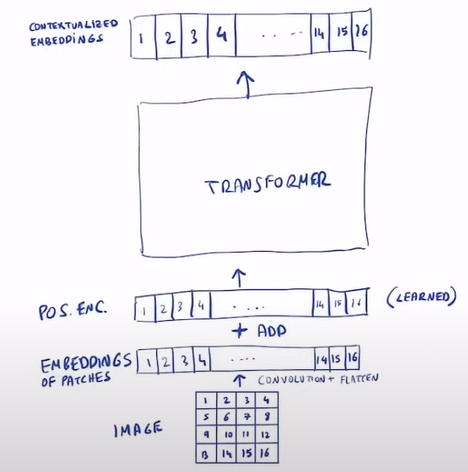 CONTEXTUALIZED
EMBEDDINGS
1 2 3 4 . . . . 14 15 16
TRANSFORMER
POS. ENC. 1 2 3 4 . . . . 14 15 16 (LEARNED)
+ ADD
EMBEDDINGS
OF PATCHES
1 2 3 4 . . . . 14 15 16
CONVOLUTION + FLATTEN
IMAGE
1 2 3 4
5 6 7 8
9 10 11 12
13 14 15 16